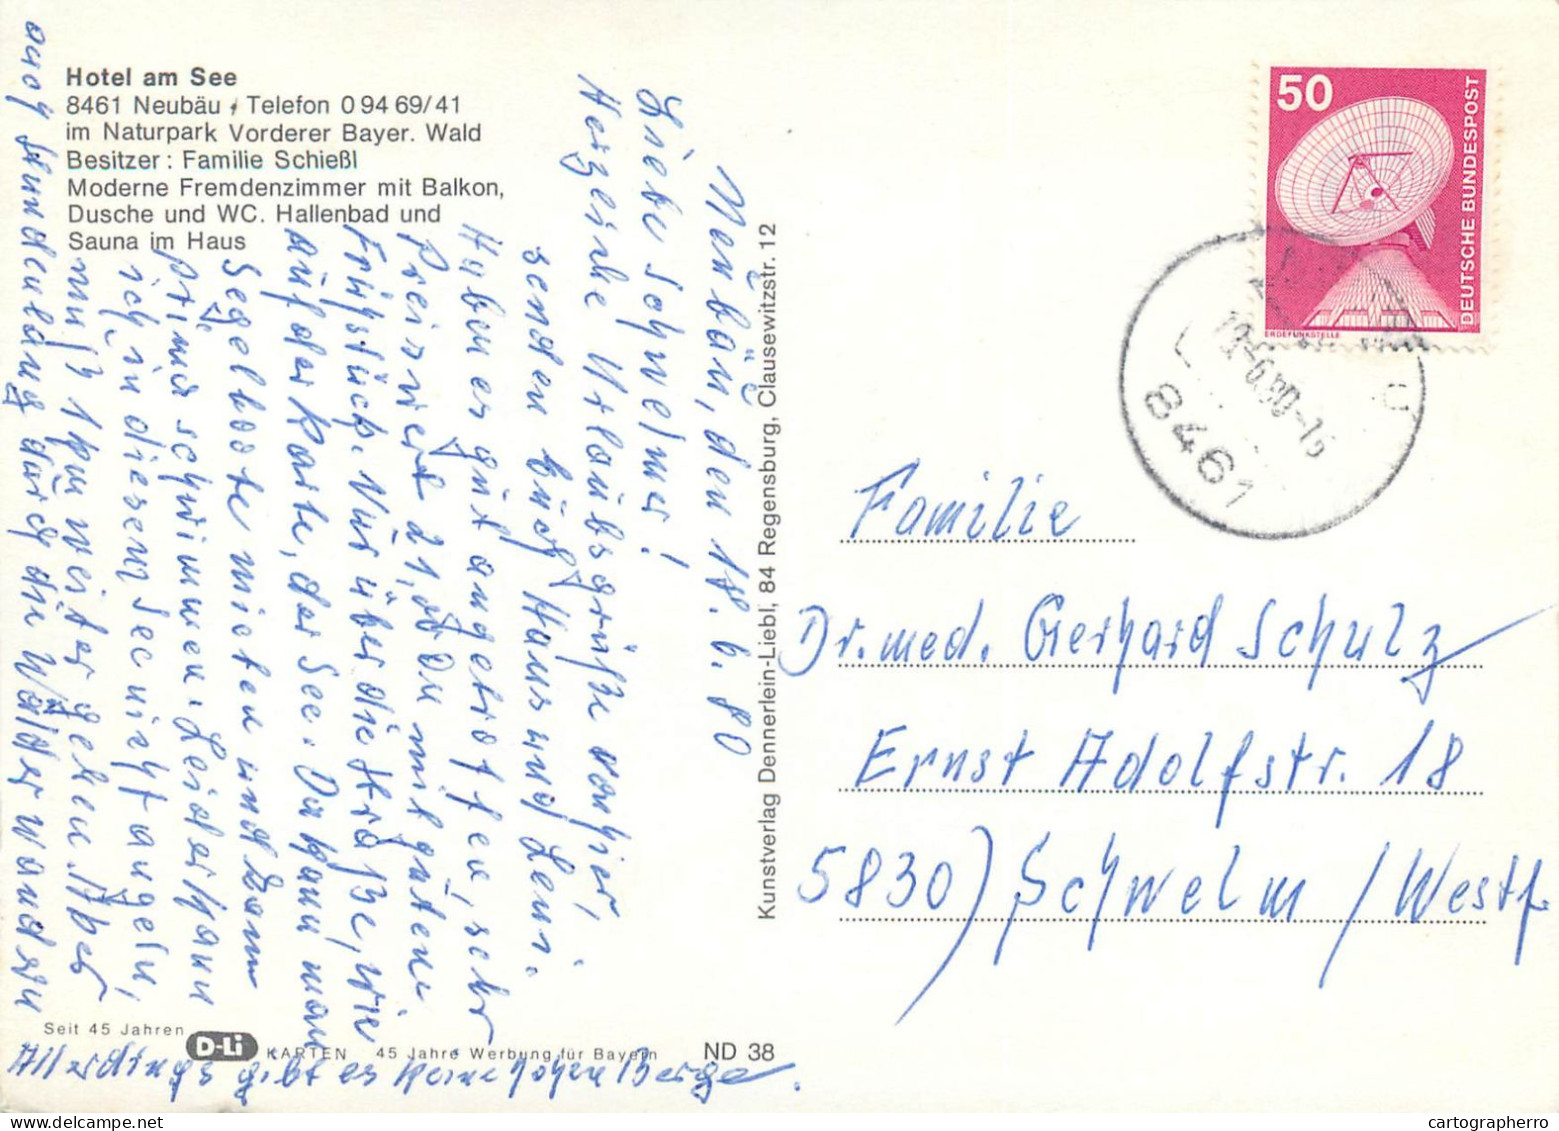 Hotel am See
8461 Neubäu, Telefon 0 94 69/41
im Naturpark Vorderer Bayer. Wald
Besitzer: Familie Schießl
Moderne Fremdenzimmer mit Balkon,
Dusche und WC. Hallenbad und
Sauna im Haus
Neubäu, den 18. 6. 80
Liebe Schwelmer!
Herzliche Urlaubsgrüße von hier,
senden Euch Hans und Leni.
Haben es gut angetroffen, sehr
preiswert 21, DM mit gutem
Frühstück. Nur über die Straße, wie
auf der Karte, der See. Da kann man
Segelboote mieten und dann
prima schwimmen. Leider kann
ich in diesem See nicht angeln,
muß 1 km weiter gehen. Aber
auch stundenlang durch die Wälder wandern
Allerdings gibt es keine hohen Berge.
Seit 45 Jahren D-Li KARTEN 45 Jahre Werbung für Bayern ND 38
Kunstverlag Dennerlein-Liebl, 84 Regensburg, Clausewitzstr. 12
50
DEUTSCHE BUNDESPOST
ERDEFUNKSTELLE
19.-6.80-16
8461
Familie
Dr. med. Gerhard Schulz
Ernst Adolfstr. 18
5830) Schwelm / Westf.
cartographerro